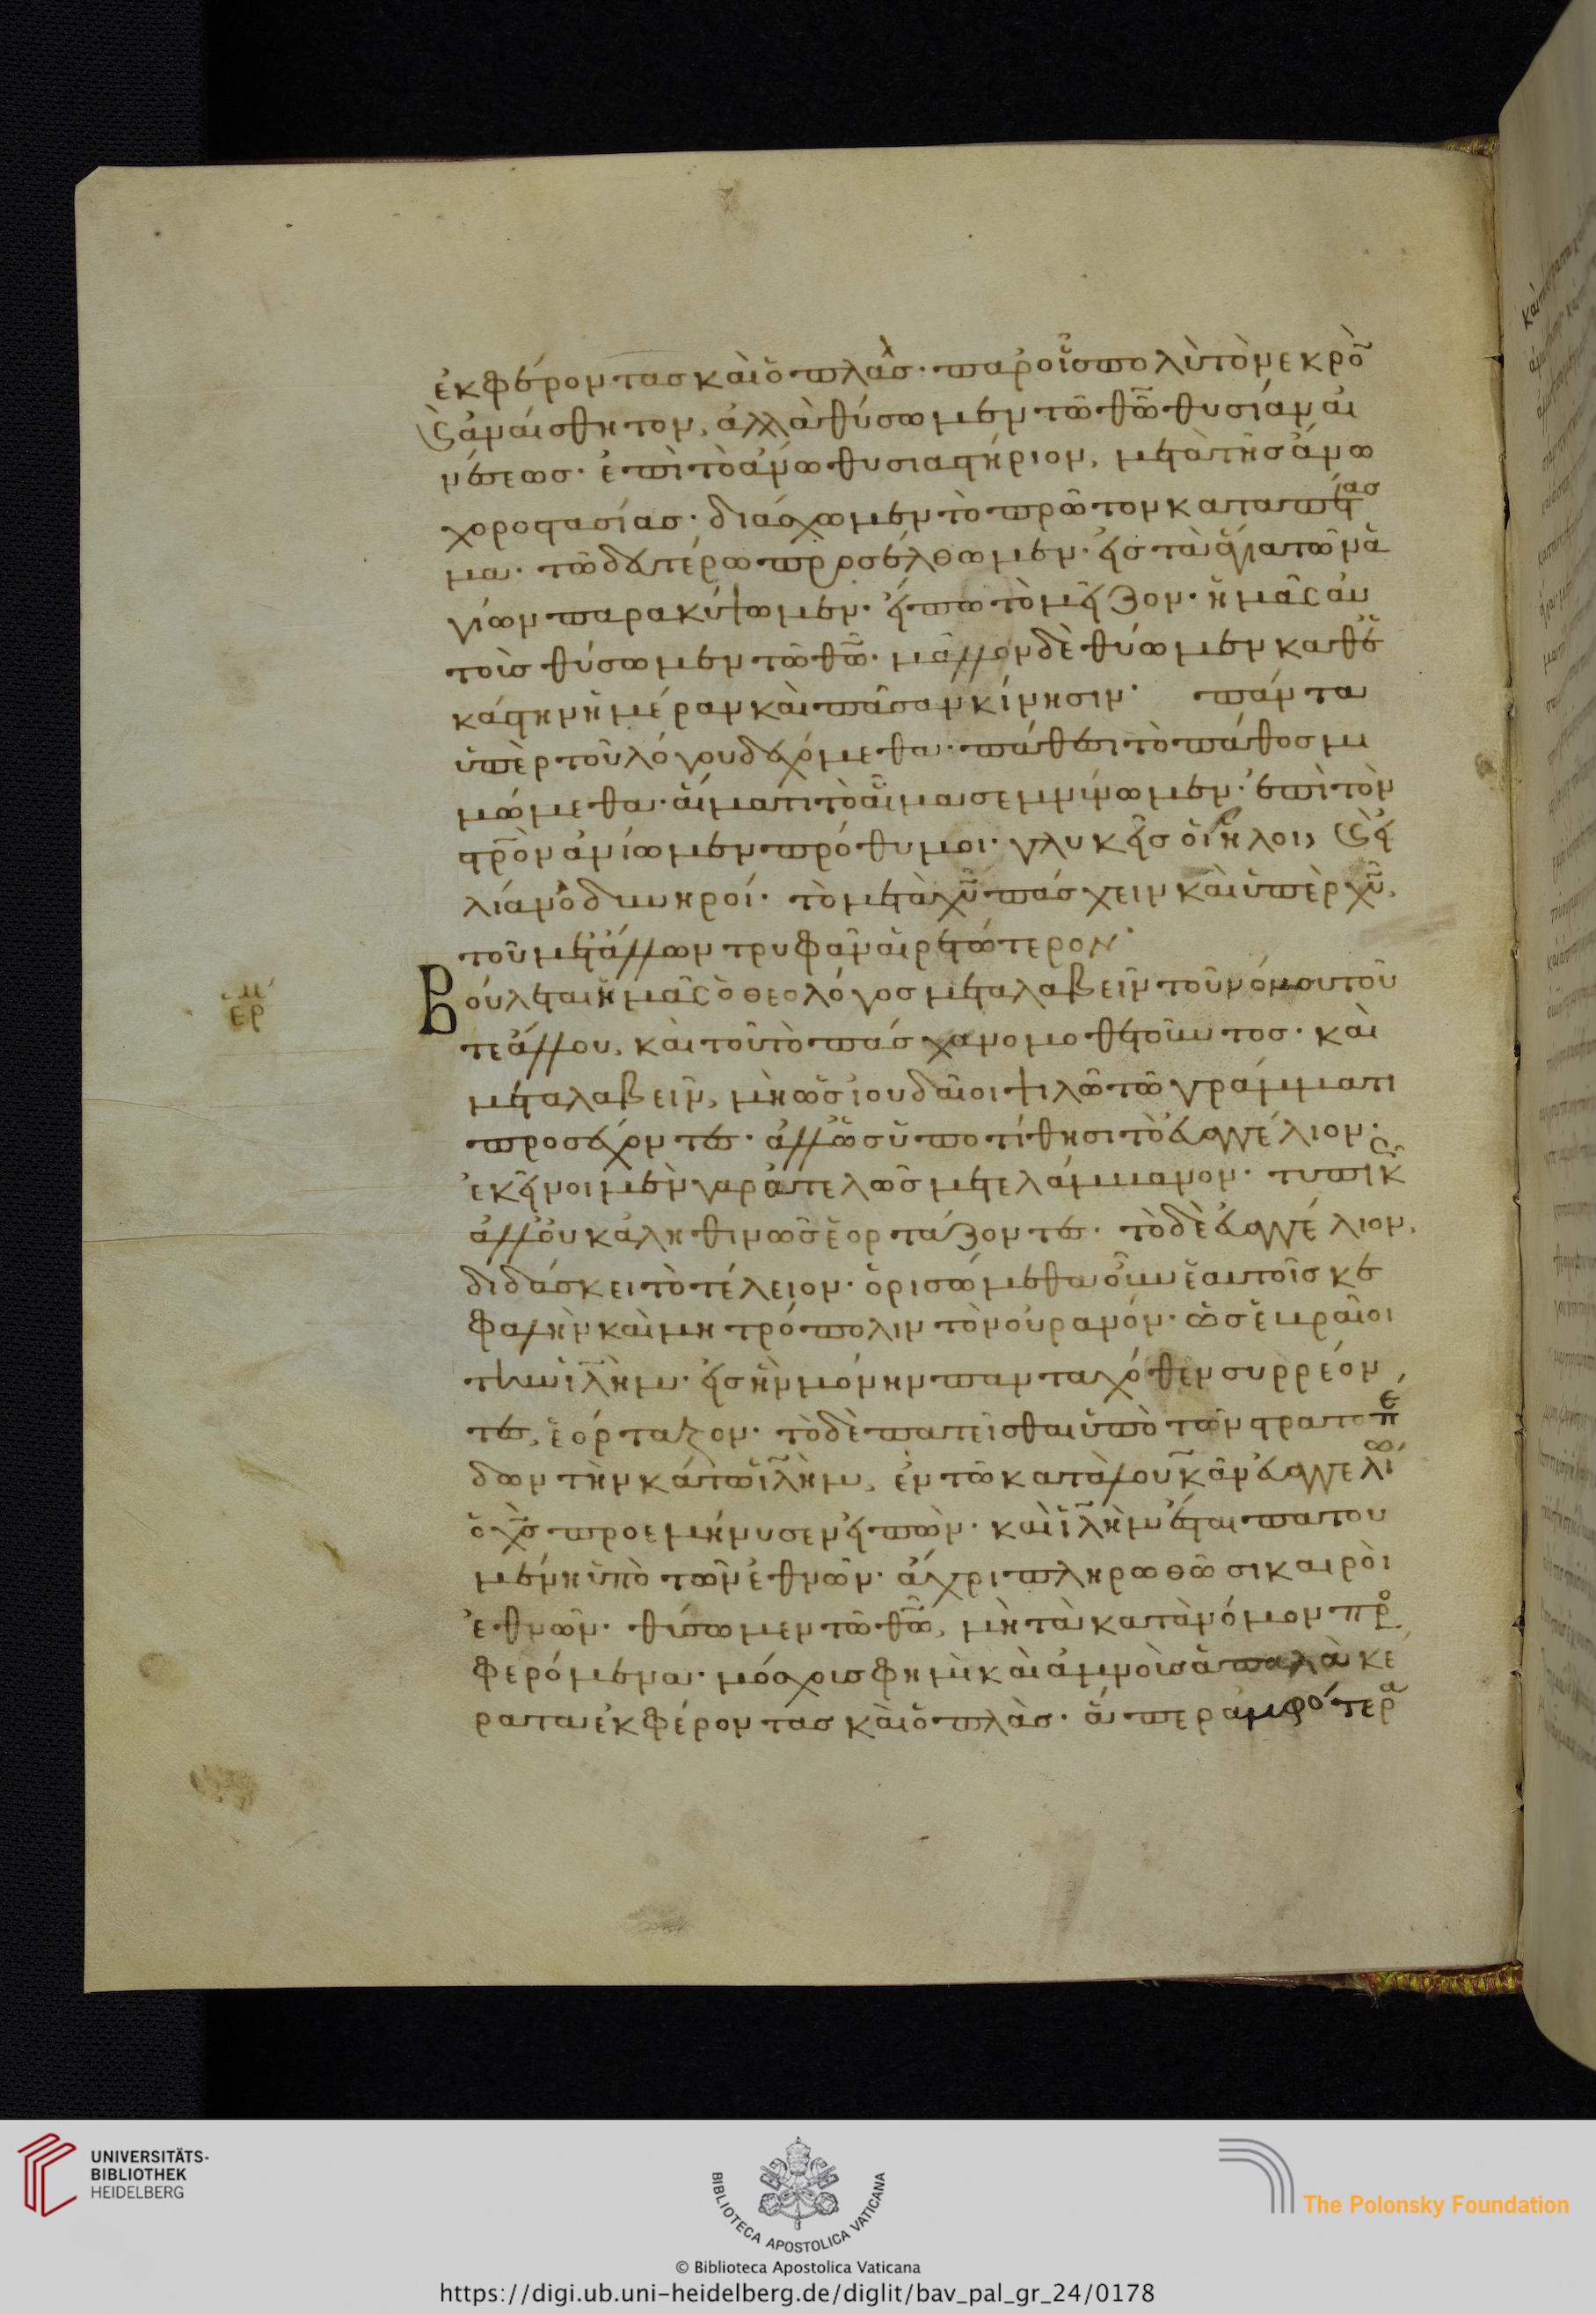 ἐκφέροντας καὶ ὁπλὰς· παρ' οἷς πολὺ τὸ νεκρὸ
καὶ ἀναίσθητον, ἀλλὰ θύσωμεν τῶ θῶ θυσίαν αἰ
νέσεως· ἐπὶ τὸ ἄνω θυσιαστήριον, μετὰ τῆς ἄνω
χοροστασίας· διάσχωμεν τὸ πρῶτον καταπέτας
μα· τῶ δευτέρω προσέλθωμεν· εἰς τὰ ἅγια τῶν ἁ
γίων παρακύψωμεν· εἴπω τὸ μεῖζον· ἡμᾶς αὐ
τοὺς θύσωμεν τῶ θῶ· μᾶλλον δὲ θύωμεν καθ' ἑ
κάστην ἡμέραν καὶ πᾶσαν κίνησιν· πάντα
ὑπὲρ τοῦ λόγου δεχόμεθα· πάθεσι τὸ πάθος μι
μώμεθα· αἵματι τὸ αἷμα σεμνύνωμεν· ἐπὶ τὸν
στρὸν ἀνίωμεν πρόθυμοι· γλυκεῖς οἱ ἧλοι, καὶ εἰ
λίαν ὀδυνηροί· τὸ μετὰ χυ πάσχειν καὶ ὑπὲρ χυ,
τοῦ μετ' ἄλλων τρυφᾶν αἱρετώτερον·
ἑρ μη
Βούλεται ἡμᾶς ὁ θεολόγος μεταλαβεῖν τοῦ νόμου τοῦ
τε ἄλλου, καὶ τοῦ τὸ πάσχα νομοθετοῦντος· καὶ
μεταλαβεῖν, μὴ ὡς ἰουδαῖοι ψιλῶ τῶ γράμματι
προσέχοντες· ἀλλ' ὡς ὑποτίθησι τὸ εὐαγγέλιον·
ἐκεῖνοι μὲν γὰρ ἀτελῶς μετελάμβανον· τυπικ
ἀλλ' οὐκ ἀληθινῶς ἑορτάζοντες· τὸ δὲ εὐαγγέλιον,
διδάσκει τὸ τέλειον· ὁρισώμεθα οὖν ἑαυτοῖς κε
φαλὴν καὶ μητρόπολιν τὸν οὐρανόν· ὡς ἑβραῖοι
τὴν ἱλὴμ· εἰς ἣν μόνην πανταχόθεν συρρέον
τες, ἑόρταζον· τὸ δὲ πατεῖσθαι ὑπὸ τῶν στρατοπέ
δων τὴν κάτω ἱλὴμ, ἐν τῶ κατὰ λουκᾶν εὐαγγελίω
ὁ χς προεμήνυσεν εἰπὼν· καὶ ἱλὴμ ἔσται πατου
μένη ὑπὸ τῶν ἐθνῶν· ἄχρι πληρωθῶσι καιροὶ
ἐθνῶν· θύσωμεν τῶ θῶ, μὴ τὰ κατὰ νόμον προ
φερόμενα· μόσχους φημὶ καὶ ἀμνοὺς ἁπαλὰ κέ
ρατα ἐκφέροντας καὶ ὁπλὰς· ἅπερ ἀμφότερα
UNIVERSITÄTS-
BIBLIOTHEK
HEIDELBERG
BIBLIOTECA APOSTOLICA VATICANA
The Polonsky Foundation
© Biblioteca Apostolica Vaticana
https://digi.ub.uni-heidelberg.de/diglit/bav_pal_gr_24/0178